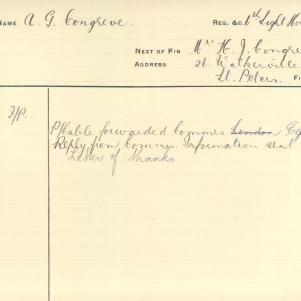 NAME A. G. Congreve. REG. &C. 6th Light Ho
NEXT OF KIN Mrs H. J. Congre
ADDRESS 21. Waterville
St. Peters. F
I/P. P/Cable forwarded Commrs London Eg
Reply from Commrs. Information sent
Letter of thanks